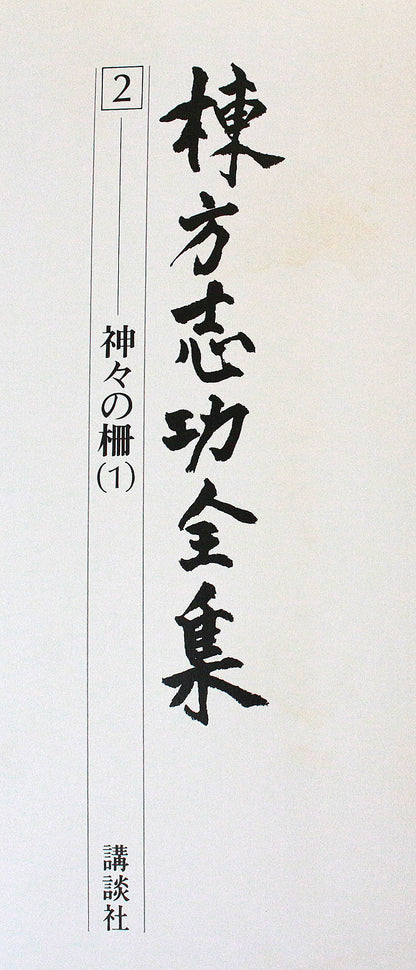 棟方志功全集
2 神々の柵(1)
講談社